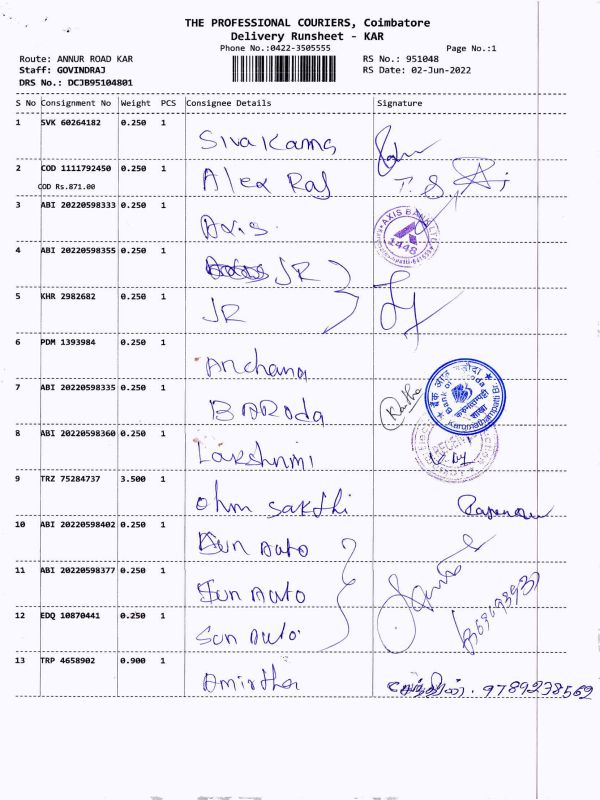 THE PROFESSIONAL COURIERS, Coimbatore
Delivery Runsheet - KAR
Phone No.:0422-3505555 Page No.:1
Route: ANNUR ROAD KAR RS No.: 951048
Staff: GOVINDRAJ RS Date: 02-Jun-2022
DRS No.: DCJB95104801
S No Consignment No Weight PCS Consignee Details Signature
1 SVK 60264182 0.250 1
Sivakama
2 COD 1111792450 0.250 1
COD Rs.871.00 Alex Raj
3 ABI 20220598333 0.250 1
Axis AXIS BANK LTD 1448
4 ABI 20220598355 0.250 1
JR
5 KHR 2982682 0.250 1
JR
6 PDM 1393984 0.250 1
Archana
7 ABI 20220598335 0.250 1
BARODA Radha
बैंक ऑफ़ बड़ौदा Bank of Baroda शाखा Karumathampatti Br
8 ABI 20220598360 0.250 1
Lakshmi RECEIVED
9 TRZ 75284737 3.500 1
Ohm sakthi
10 ABI 20220598402 0.250 1
Sun Auto
11 ABI 20220598377 0.250 1
Sun Auto
12 EDQ 10870441 0.250 1
Sun Auto
13 TRP 4658902 0.900 1
Amirtha 9789238562